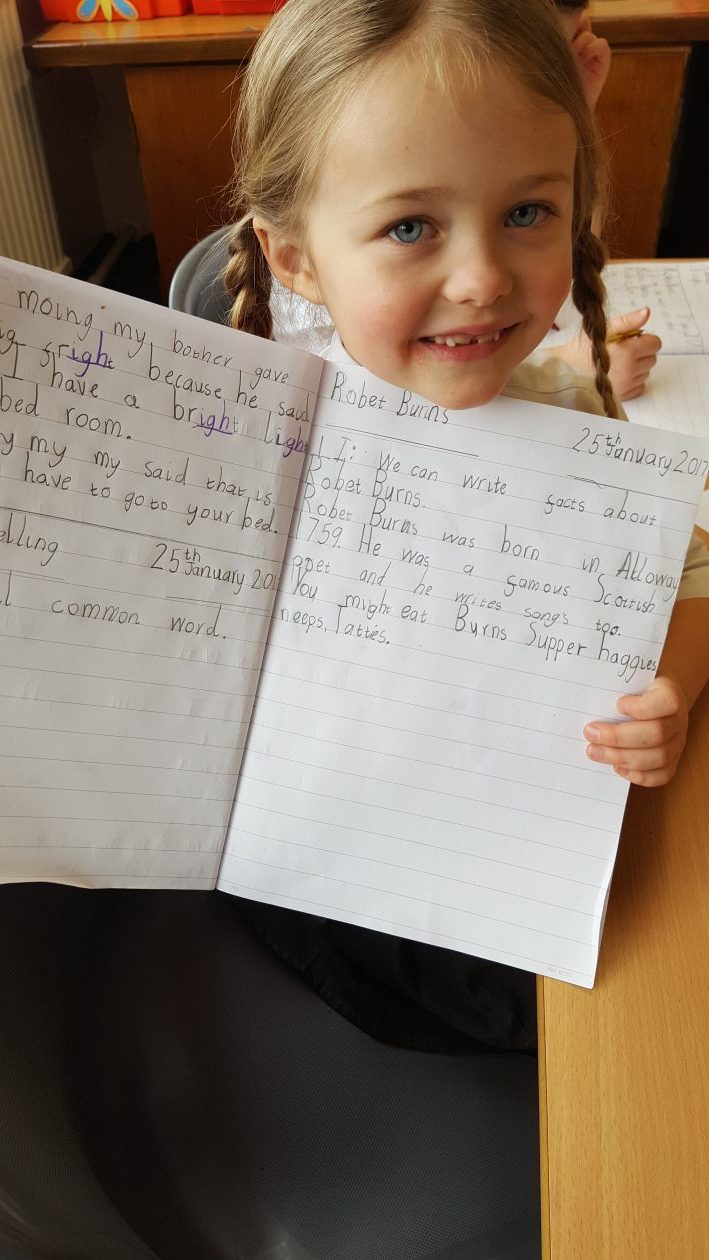 moing my bother gave
fright because he said
I have a bright light
bed room.
my my said that is
have to go to your bed.
25th January 201
common word.
Robet Burns
25th January 2017
L I: We can write facts about
Robet Burns.
Robet Burns was born in Alloway
1759. He was a famous Scottish
ppet and he writes song's too.
You might eat Burns Supper haggies
neeps. Tatties.